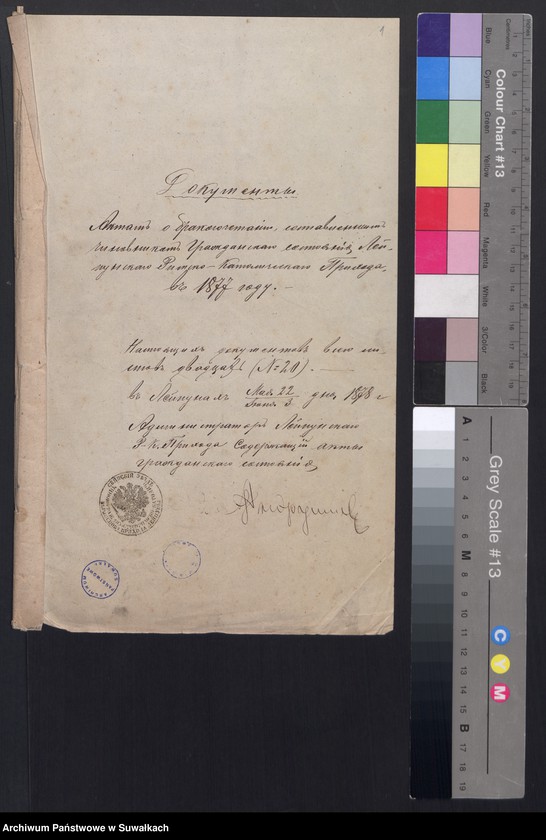 1
Документы
Актамъ о бракосочетаніи, составленнымъ
чиновникомъ Гражданскаго состоянія Лей-
пунскаго Римско-Католическаго Прихода,
въ 1877 году. -
Настоящихъ документовъ всего ли-
стовъ двадцать (№ 20). —
въ Лейпунахъ Мая 22 / Іюня 3 дня 1878 г
Администраторъ Лейпунскаго
Р.-К. Прихода Содержащій акты
гражданскаго состоянія
Colour Chart #13
Blue
Cyan
Green
Yellow
Red
Magenta
White
3/Color
Black
Centimetres
Inches
Grey Scale #13
A 1 2 3 4 5 6 M 8 9 10 11 12 13 14 15 B 17 18 19
C Y M
Archiwum Państwowe w Suwałkach